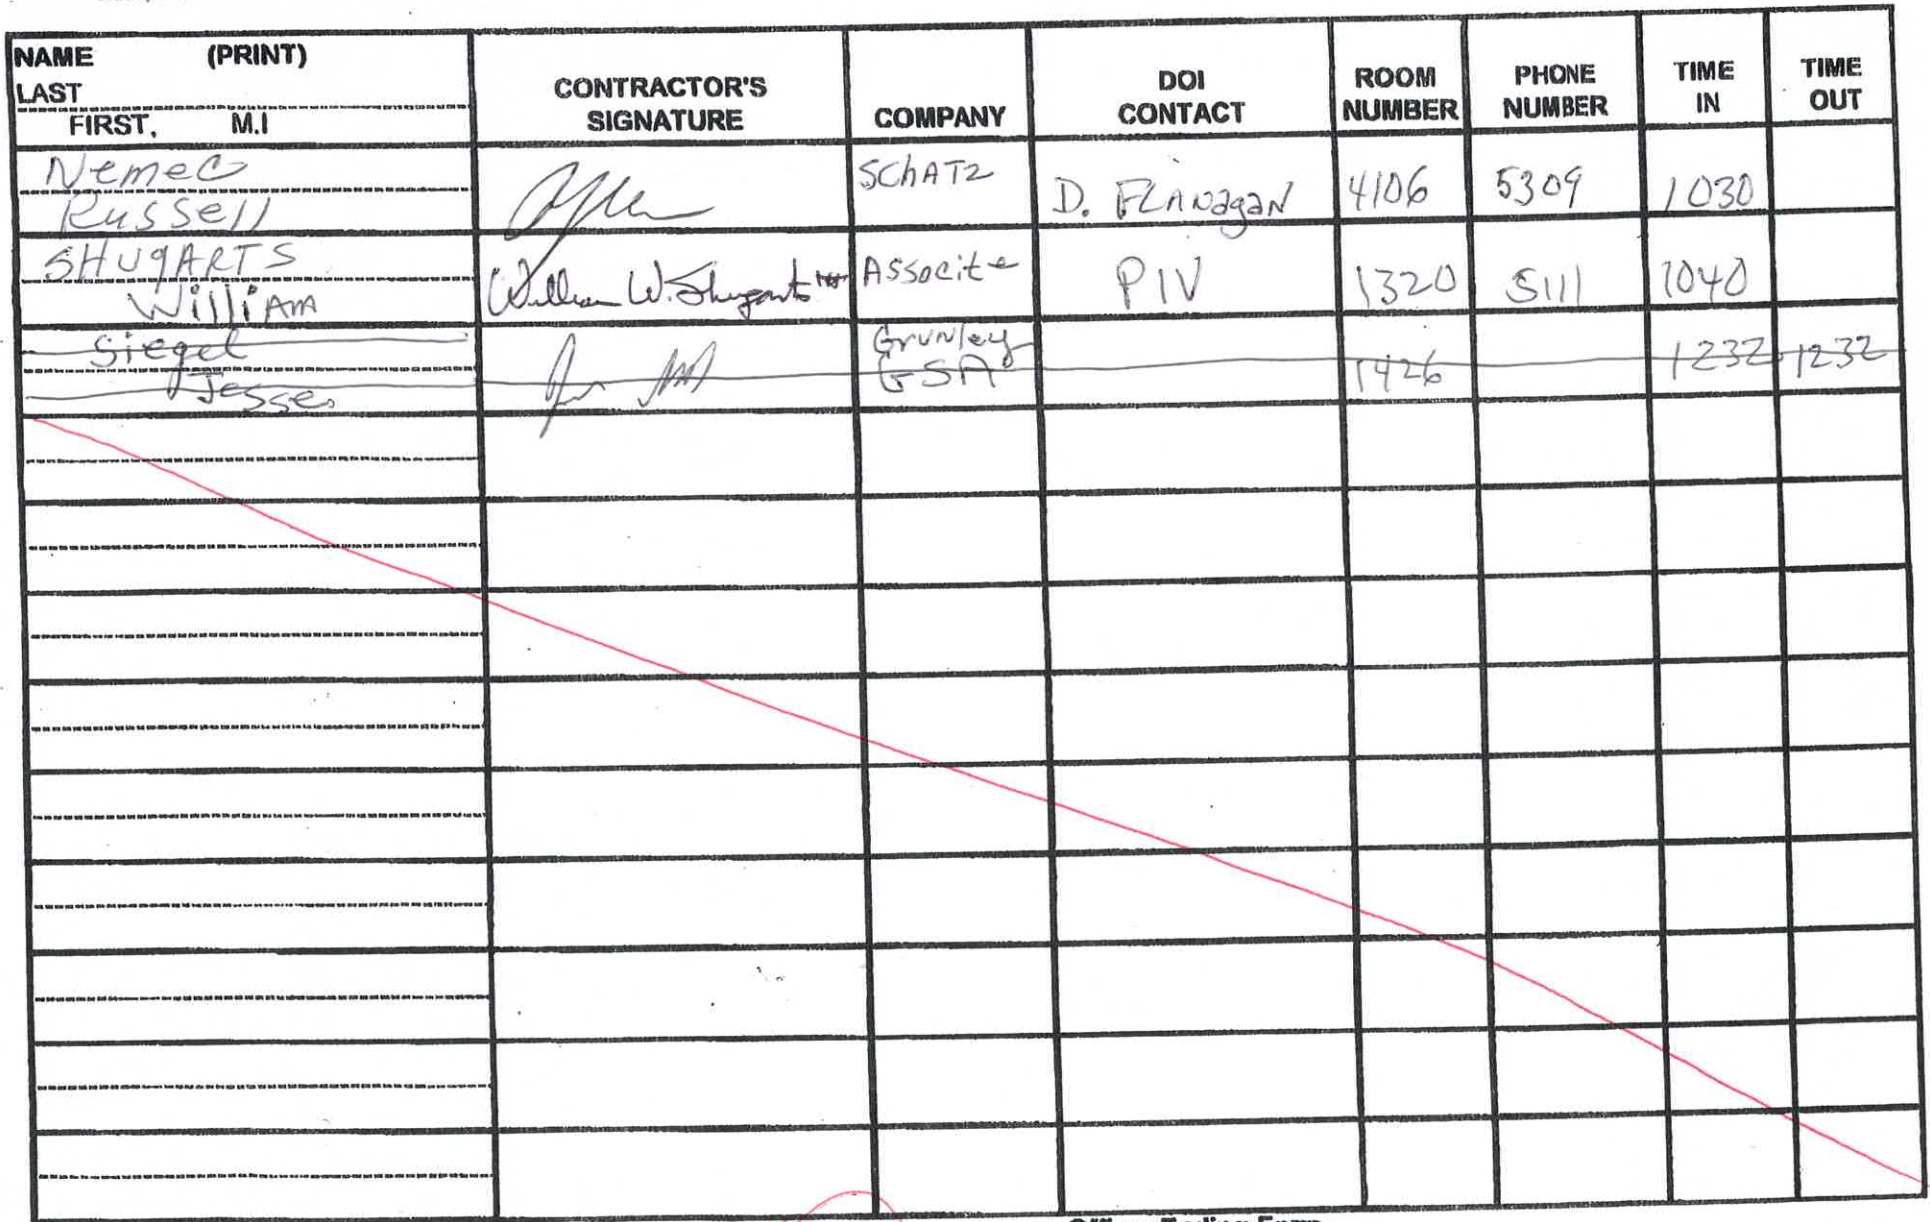 NAME (PRINT)
LAST
FIRST, M.I
CONTRACTOR'S
SIGNATURE
COMPANY
DOI
CONTACT
ROOM
NUMBER
PHONE
NUMBER
TIME
IN
TIME
OUT
Nemec
Russell
SChATz
D. FLANagaN
4106
5309
1030
SHUgARTS
WilliAm
William W. Shugarts
Associte
PIV
1320
5111
1040
Siegel
Jesse
Grunley
GSA
1426
1232
1232